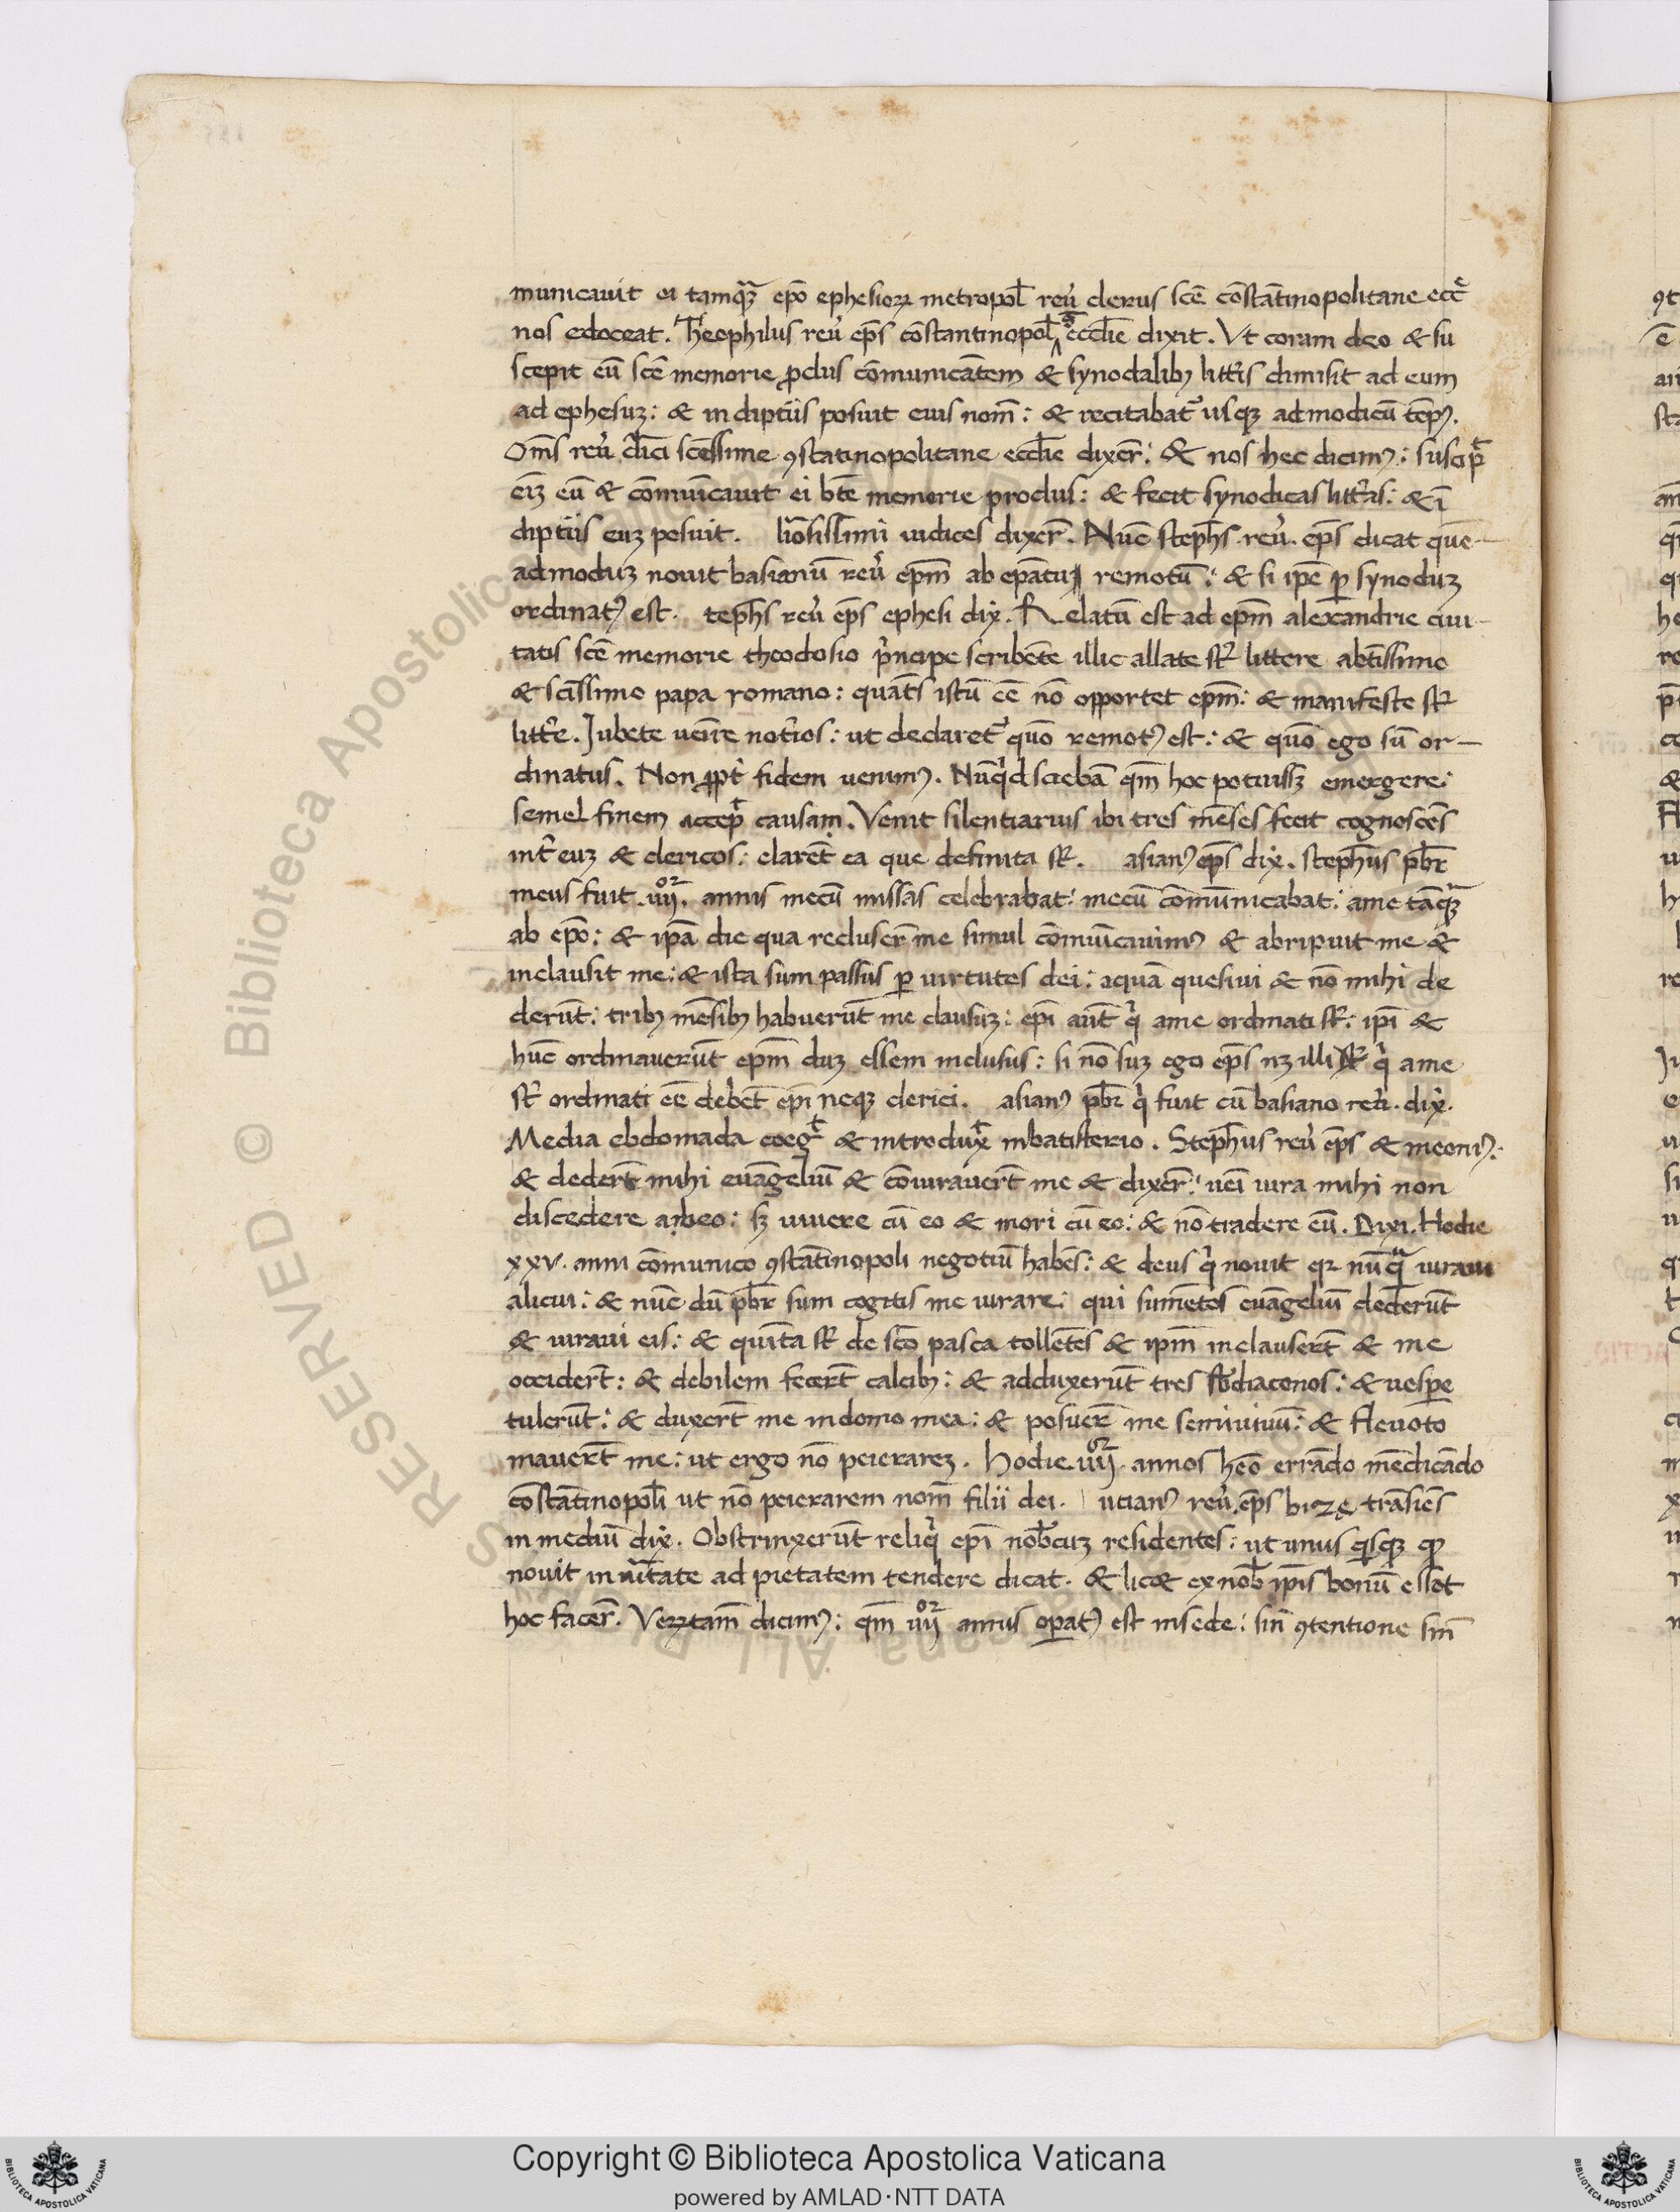 municavit ei tamqȝ epō ephesioꝝ metropol̄ reu̓ clerus scē cōstātinopolitane eccē
nos edoceat. Theophilus reu̓ ep̄s cōstantinopol̄ eccl̄ie dixit. Vt coram deo & su
scepit eū scē memorie ꝓclus cōmunicātem & synodalibꝫ litt̓is dimisit ad eum
ad ephesuȝ: & in diptiis posuit euis nom̄: & recitabat᷑ usqȝ ad modicū tēpꝰ.
Om̄s reu̓ cl̄ici scēssime ꝯstatinopolitane eccl̄ie dixer̄: & nos hec dicimꝰ: suscip̄
eiȝ eū & cōmūicavit ei btē memorie proclus: & fecit synodicas litt̓as: & ī
diptiis euȝ posuit. l̄iōsissimi iudices dixer̄. Nūc steph̄s reu̓. ep̄s dicat quē-
admoduȝ novit basianū reu̓ ep̄m ab ep̄atu remotū: & si ip̄e ꝑ synoduȝ
ordinatꝰ est. teph̄s reu̓ ep̄s ephesi dix̓. Relatū est ad ep̄m alexandrie civi-
tatis scē memorie theodosio p̓ncipe scribēte illic allate st̓ littere abtīssimo
& scīssimo papa romano: quāt̄s istū eē nō opportet ep̄m: & manifeste st̓
litt̓e. Jubete uenīre not̓ios: ut declaret᷑ quō remotꝰ est: & quō ego sū or-
dinatus. Non ꝓpt̓ fidem uenimꝰ. Nūq̓d sciebā qm̄ hoc potuissȝ emergere:
semel finem accep̄ causam. Venit silentiarius ibi tres mēses fecit cognoscēs
int̓ euȝ & clericos: clarēt ea que definita st̓. asianꝰ ep̄s dix̓. steph̄us pb̄r
meus fuit .iiij. annis mecū missas celebrabat: mecū cōmūnicabat: ame tāqȝ
ab epō: & ip̄a die qua recluser̄ me simul cōmūicavimꝰ & abripuit me &
inclausit me: & ista sum passus ꝑ uirtutes dei: aquā quesiui & nō mihi de
derūt: tribꝫ mēsibꝫ habuerūt me clausuȝ: ep̄i aūt q̓ ame ordinati st̓: ip̄i &
hūc ordinaverūt ep̄m duȝ essem inclusus: si nō suȝ ego ep̄s nȝ illi st̓ q̓ ame
st̓ ordinati eē debēt ep̄i neqȝ clerici. asianꝰ pb̄r q̓ fuit cū basiano reu̓. dix̓.
Media ebdomada coeḡ & introdux̄ inbatisterio. Steph̄us reu̓ ep̄s & meoniꝰ:
& dedert̄ mihi euāgeliū & cōiuravert̄ me & dixer̄: uēi iura mihi non
discedere abeo: sȝ uiuere cū eo & mori cū eo: & nō tradere eū. Dixi. Hodie
xxv. anni cōmunico ꝯstātinopoli negotiū habēs: & deus q̓ novit qꝛ nūq̄ iuraui
alicui: & nūc dū pb̄r sum cogitis me iurare: qui sumētes euāgeliū dederūt
& iuraui eis: & quīta st̓ de scō pasca tollētes & ip̄m inclausert̄ & me
occidert̄: & debilem fecert̄ calcibꝫ: & adduxerūt tres sb̄diaconos: & uesp̄e
tulerūt: & duxert̄ me in domo mea: & posuer̄ me semiuiuū: & flevoto
mavert̄ me: ut ergo nō peierareȝ. Hodie iiij annos hēo errādo mēdicādo
cōstātinopol̄i ut nō peierarem nom̄ filii dei. ucianꝰ reu̓. ep̄s bizę trāsiēs
in mediū dix̓. Obstrinxerūt reliq̓ ep̄i nob̄cuȝ residentes: ut unus q̓sqȝ qđ
novit in u̓itate ad pietatem tendere dicat. & licet ex nob̄ ip̄is bonū esset
hoc facer̄. Veꝝtam̄ dicimꝰ: qm̄ iiij annis opatꝰ est insēde: sin̄ ꝯtentione sin̄